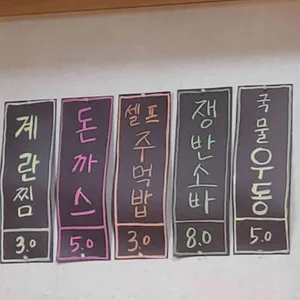 계란찜
3.0
돈까스
5.0
셀프
주먹밥
3.0
쟁반소바
8.0
국물우동
5.0